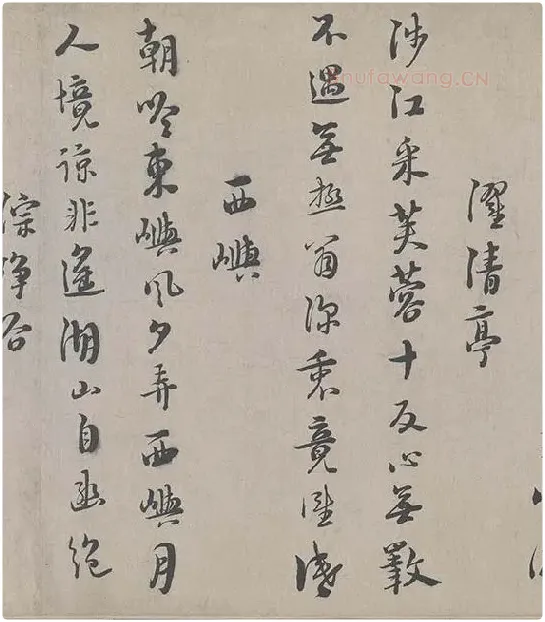 濯清亭
涉江采芙蓉十反心無斁
不遇無極翁深衷竟誰識
西嶼
朝吟東嶼風夕弄西嶼月
人境諒非遙湖山自幽絶
淙琤谷
shufawang.CN